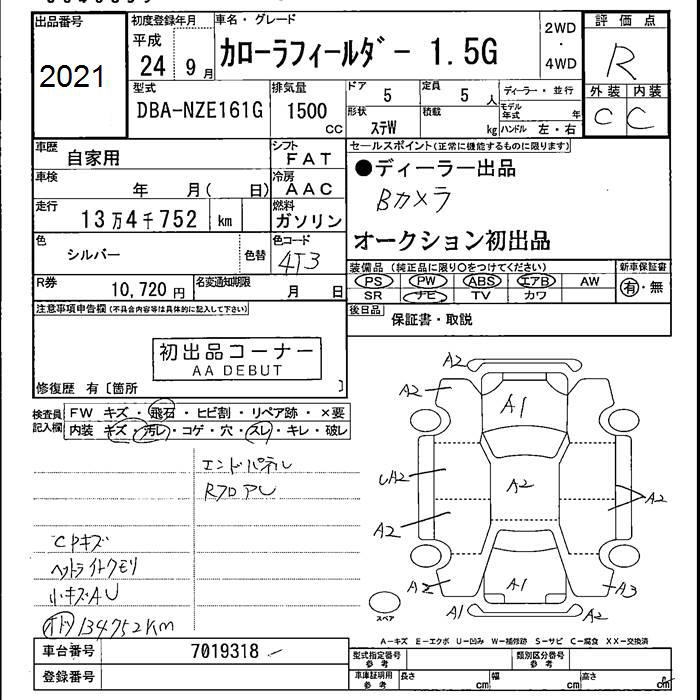 出品番号 初度登録年月 車名・グレード 評価点
2021
平成
24 9月 カローラフィールダー 1.5G 2WD・4WD R
型式 排気量 ドア 定員 ディーラー・並行 外装 内装
DBA-NZE161G 1500 cc 5 5 人 モデル年式 年 C C
形状 積載
ステW kg ハンドル 左・右
車歴 自家用 シフト FAT セールスポイント(正常に機能するものに限ります)
車検 年 月( 日) 冷房 AAC ●ディーラー出品
走行 13万4千752 km 燃料 ガソリン Bカメラ
色 シルバー 色替 色コード 4T3 オークション初出品
R券 10,720円 名変通知期限 月 日
装備品(純正品に限り○をつけてください) 新車保証書
PS PW ABS エアB AW 有・無
SR ナビ TV カワ
注意事項申告欄(不具合内容等は具体的に記入して下さい) 後日品 保証書・取説
初出品コーナー
AA DEBUT
修復歴 有〔箇所 〕
検査員記入欄 FW キズ・飛石・ヒビ割・リペア跡・×要
内装 キズ・汚レ・コゲ・穴・スレ・キレ・破レ
エンドパネル
RフロアU
CPキズ
ヘットライトクモリ
小キズAU
オドメ 134752KM
A2
A2 A1
UA2 A2 A2
A2
A2 A1 A3
A1 A2
スペア
A-キズ E-エクボ U-凹み W-補修跡 S-サビ C-腐食 XX-交換済
車台番号 7019318 型式指定番号 参考 類別区分番号 参考
登録番号 車庫証明用 参考 長さ cm 幅 cm 高さ cm